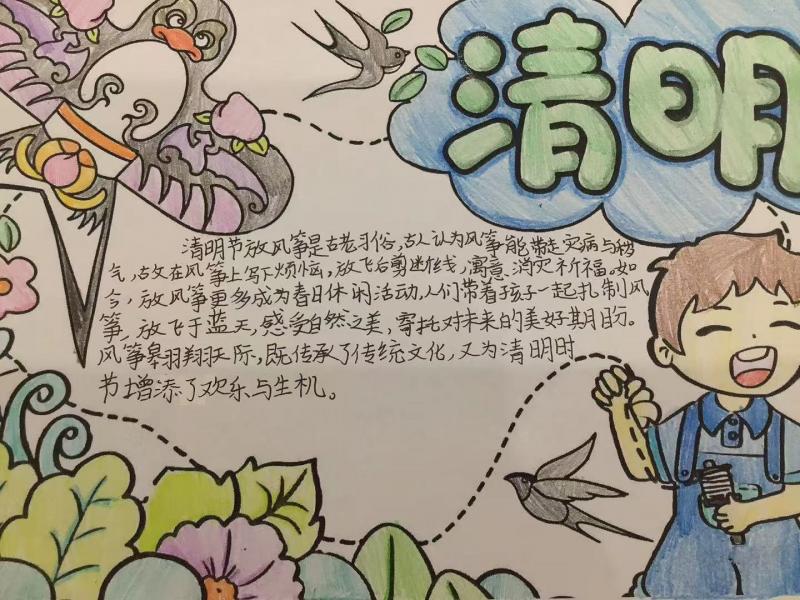 清明
清明节放风筝是古老习俗,古人认为风筝能带走灾病与秽
气,故在风筝上写下烦恼,放飞后剪断线,寓意消灾祈福。如
今,放风筝更多成为春日休闲活动,人们带着孩子一起扎制风
筝,放飞于蓝天,感受自然之美,寄托对未来的美好期盼。
风筝翱翔天际,既传承了传统文化,又为清明时
节增添了欢乐与生机。